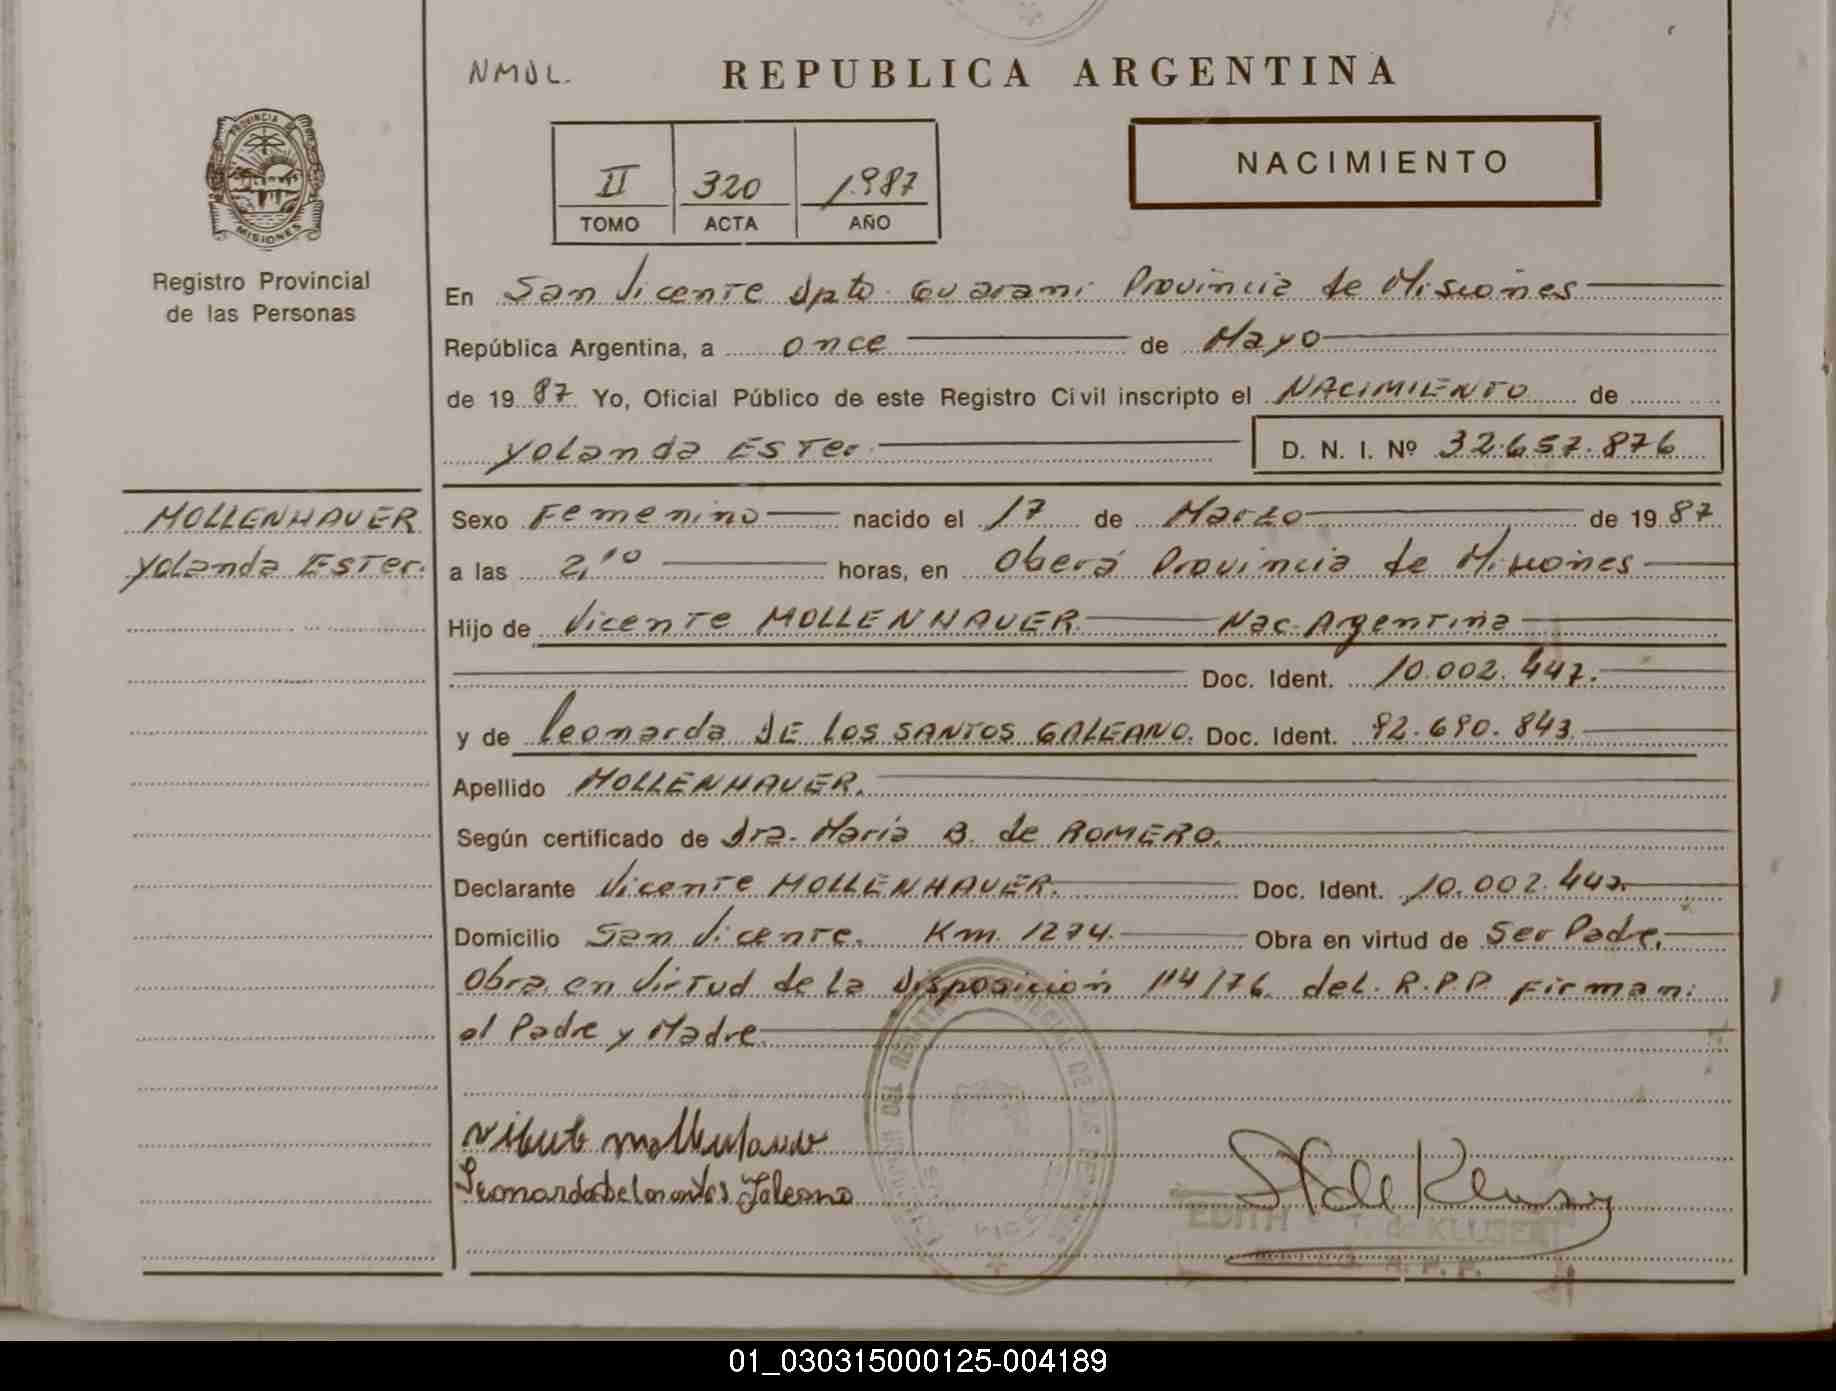 NMDL.
REPUBLICA ARGENTINA
PROVINCIA DE
MISIONES
Registro Provincial
de las Personas
II 320 1987
TOMO ACTA AÑO
NACIMIENTO
En San Vicente Dpto. Guarani Provincia de Misiones
República Argentina, a once de Mayo
de 1987 Yo, Oficial Público de este Registro Civil inscripto el NACIMIENTO de
Yolanda ESTer D. N. I. Nº 32.657.876
MOLLENHAUER
Yolanda ESTer.
Sexo Femenino nacido el 17 de Marzo de 1987
a las 2,10 horas, en Oberá Provincia de Misiones
Hijo de Vicente MOLLENHAUER Nac. Argentina
Doc. Ident. 10.002.447.
y de Leonarda DE LOS SANTOS GALEANO. Doc. Ident. 92.690.843
Apellido MOLLENHAUER.
Según certificado de Dra. Maria B. de ROMERO.
Declarante Vicente MOLLENHAUER. Doc. Ident. 10.002.447.
Domicilio San Vicente. Km. 1274. Obra en virtud de Ser Padre.
Obra en Virtud de la Disposición 114/76 del. R.P.P. Firman:
el Padre y Madre.
EDITH T. de KLUSENER
R. P. P.
01_030315000125-004189